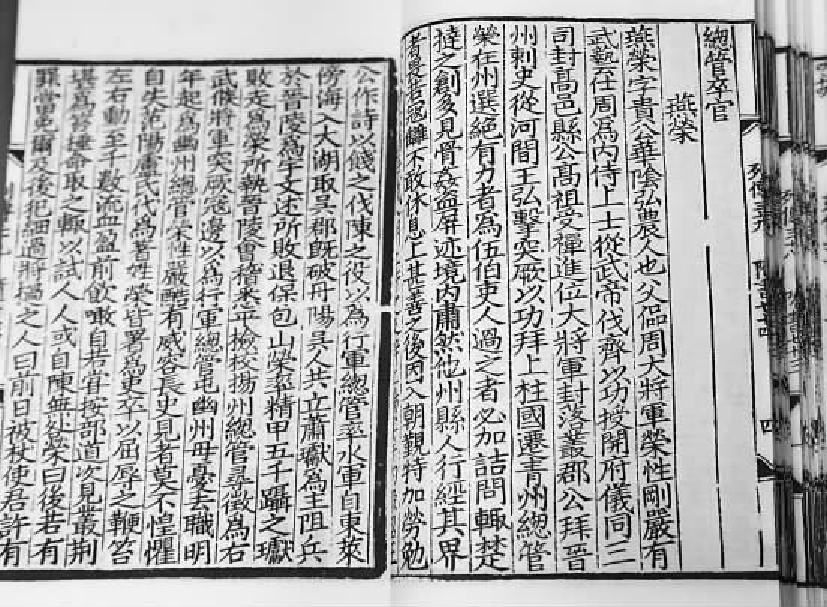 總管卒官
燕榮
燕榮字貴公華陰弘農人也父偘周大將軍榮性剛嚴有
武藝仕周爲内侍上士從武帝伐齊以功授開府儀同三
司封高邑縣公髙祖受禪進位大將軍封落叢郡公拜晉
州刺史從河間王弘擊突厥以功拜上柱國遷青州總管
榮在州選絶有力者爲伍伯吏人過之者必加詰問輙楚
撻之創多見骨姦盜屏迹境内肅然他州縣人行經其界
者畏若寇讎不敢休息上甚善之後因入朝覲特加勞勉
公作詩以餞之伐陳之役以為行軍總管率水軍自東萊
傍海入大湖取吳郡既破丹陽吳人共立蕭瓛為主阻兵
於晉陵爲宇文述所敗退保包山榮率精甲五千躡之瓛
敗走爲榮所執晉陵會稽悉平檢校揚州總管尋徵為右
武候將軍突厥寇邊以爲行軍總管屯幽州母憂去職明
年起爲幽州總管榮性嚴酷有威容長史見者莫不惶懼
自失范陽盧氏代爲著姓榮皆署爲吏卒以屈辱之鞭笞
左右動至千數流血盈前飲噉自若甞按部道次見叢荆
堪爲笞捶命取之輙以試人人或自陳無咎榮曰後若有
罪當免爾及後犯細過將撾之人曰前日被杖使君許有